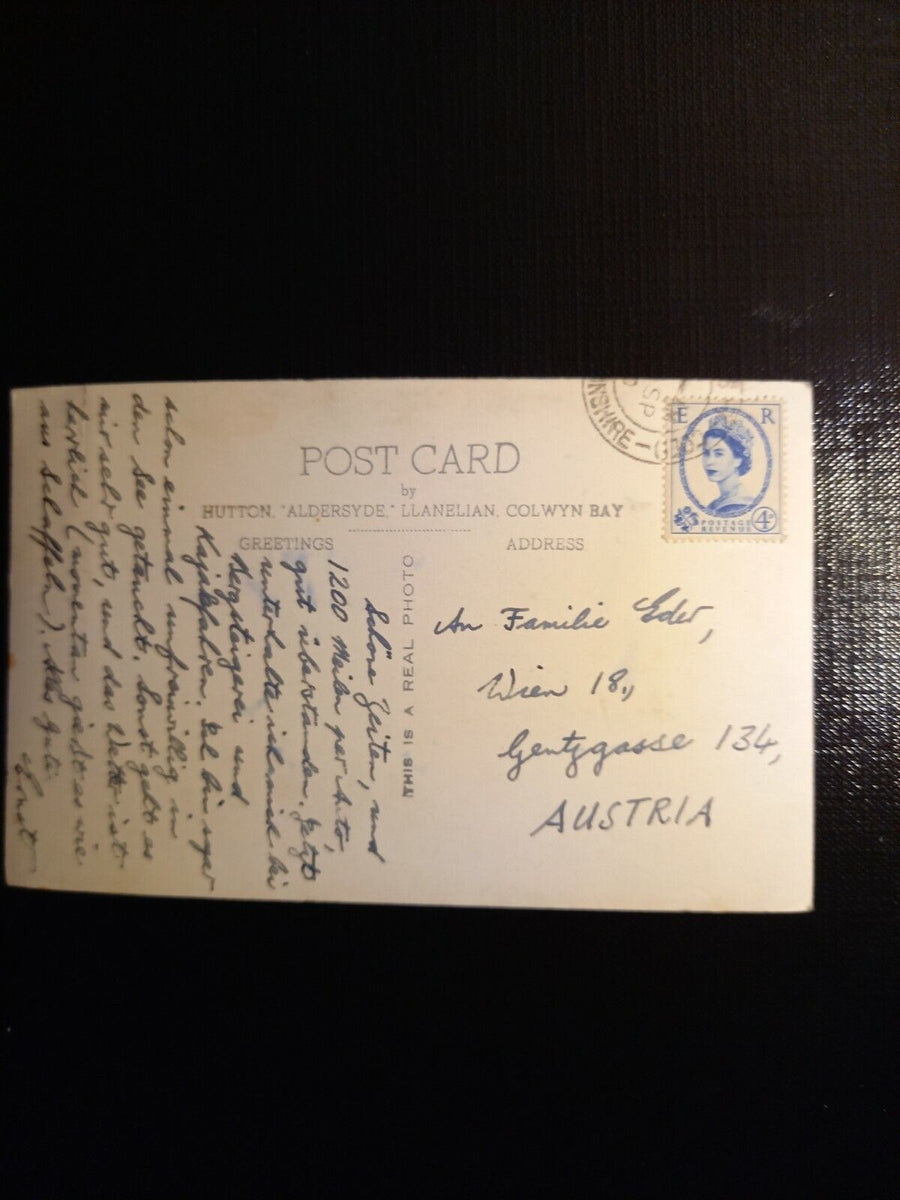 POST CARD
by
HUTTON, "ALDERSYDE," LLANELIAN, COLWYN BAY
GREETINGS
ADDRESS
THIS IS A REAL PHOTO
E R
POSTAGE
REVENUE
4D
NSHIRE
SP
An Familie Eder,
Wien 18.,
Gentzgasse 134,
AUSTRIA
Schöne Zeiten, und
1200 Meilen per Auto,
gut überstanden. Jetzt
unterhalte ich mich bei
Bergsteigerei und
Kajakfahren. Ich bin sogar
schon einmal unfreiwillig in
den See getaucht. Sonst geht es
mir sehr gut, und das Wetter ist
herrlich (momentan gießt es wie
aus Schaffeln). Alles Gute
Ernst